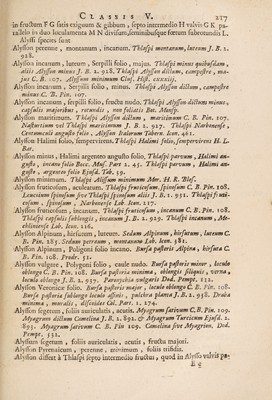 CLASSIS V. 217
in fructum F G satis exiguum & gibbum, septo intermedio H valvis G K pa-
rallelo in duo loculamenta M N divisum, seminibusque fœtum subrotundis L.
Alyssi species sunt
Alysson perenne, montanum, incanum. Thlaspi montanum, luteum J. B. 2.
928.
Alysson incanum, luteum, Serpilli folio, majus. Thlaspi minus quibusdam,
aliis Alysson minus J. B. 2. 928. Thlaspi Alysson dictum, campestre, ma-
jus C. B. 107. Alysson minimum Clus. Hist. cxxxiij.
Alysson incanum, Serpilli folio, minus. Thlaspi Alysson dictum, campestre
minus C. B. Pin. 107.
Alysson incanum, serpilli folio, fructu nudo. Thlaspi Alysson dictum minus,
capsulis majoribus, rotundis, non foliatis Bot. Monsp.
Alysson maritimum. Thlaspi Alysson dictum, maritimum C. B. Pin. 107.
Nasturtium vel Thlaspi maritimum J. B. 2. 927. Thlaspi Narbonense,
Centunculi angusto folio, Alysson Italorum Tabern. Icon. 461.
Alysson Halimi folio, sempervirens. Thlaspi Halimi folio, sempervirens H. L.
Bat.
Alysson minus, Halimi argenteo angusto folio. Thlaspi parvum, Halimi an-
gusto, incano folio Bocc. Mus. Part 2. 45. Thlaspi parvum, Halimi an-
gusto, argenteo folio Ejusd. Tab. 39.
Alysson minimum. Thlaspi Alysson minimum Mor. H. R. Blæs.
Alysson fruticosum, aculeatum. Thlaspi fruticosum, spinosum C. B. Pin. 108.
Leucoïum spinosum sive Thlaspi spinosum aliis J. B. 2. 931. Thlaspi fruti-
cosum, spinosum, Narbonense Lob. Icon. 217.
Alysson fruticosum, incanum. Thlaspi fruticosum, incanum C. B. Pin. 108.
Thlaspi capsulis sublongis, incanum J. B. 2. 929. Thlaspi incanum, Me-
chliniense Lob. Icon. 216.
Alysson Alpinum, hirsutum, luteum. Sedum Alpinum, hirsutum, luteum C.
B. Pin. 285. Sedum parvum, montanum Lob. Icon. 381.
Alysson Alpinum, Poligoni folio incano. Bursa pastoris Alpina, hirsuta C.
B. Pin. 108. Prodr. 51.
Alysson vulgare, Polygoni folio, caule nudo. Bursa pastoris minor, loculo
oblongo C. B. Pin. 108. Bursa pastoris minima, oblongis siliquis, verna,
loculo oblongo J. B. 2. 937. Paronychia vulgaris Dod. Pempt. 112.
Alysson Veronicæ folio. Bursa pastoris major, loculo oblongo C. B. Pin. 108.
Bursa pastoris sublongo loculo affinis, pulchra planta J. B. 2. 938. Draba
minima, muralis, discoïdes Col. Part. 1. 274.
Alysson segetum, foliis auriculatis, acutis. Myagrum sativum C. B. Pin. 109.
Myagrum dictum Camelina J. B. 2. 892. & Myagrum Turcicum Ejusd. 2.
893. Myagrum sativum C. B. Pin. 109. Camelina sive Myagrion. Dod.
Pempt. 532.
Alysson segetum, foliis auriculatis, acutis, fructu majori.
Alysson Pyrenaïcum, perenne, minimum, foliis trifidis.
Alysson differt à Thlaspi septo intermedio fructus, quod in Alysso valvis pa-
E e